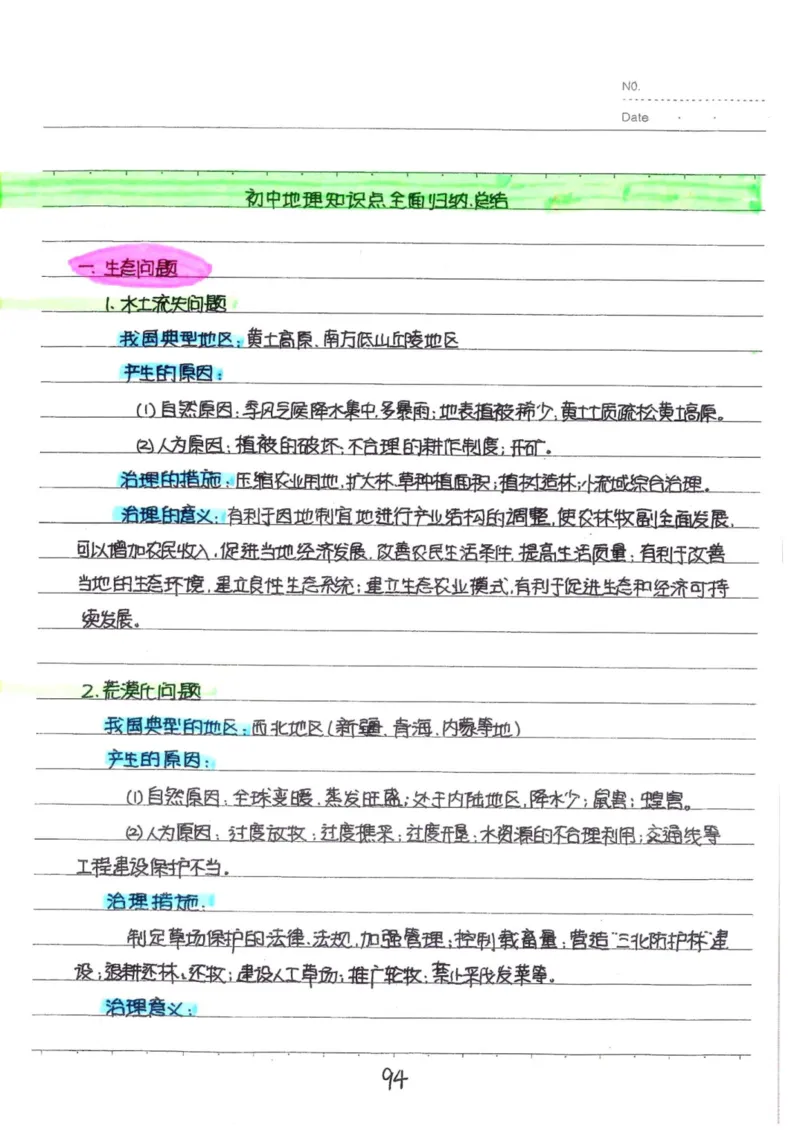 NO.
Date
初中地理知识点全面归纳.总结
一. 生态问题
1. 水土流失问题
我国典型地区：黄土高原、南方低山丘陵地区
产生的原因：
(1)自然原因：季风气候降水集中，多暴雨；地表植被稀少，黄土土质疏松黄土高原。
(2)人为原因：植被的破坏、不合理的耕作制度；开矿。
治理的措施：压缩农业用地，扩大林、草种植面积；植树造林；小流域综合治理。
治理的意义：有利于因地制宜地进行产业结构的调整，使农林牧副全面发展，
可以增加农民收入，促进当地经济发展，改善农民生活条件，提高生活质量；有利于改善
当地的生态环境，建立良性生态系统；建立生态农业模式，有利于促进生态和经济可持
续发展。
2. 荒漠化问题
我国典型的地区：西北地区(新疆、青海、内蒙等地)
产生的原因：
(1)自然原因：全球变暖，蒸发旺盛；处于内陆地区，降水少；鼠害；蝗害。
(2)人为原因：过度放牧；过度樵采；过度开垦；水资源的不合理利用；交通线等
工程建设保护不当。
治理措施：
制定草场保护的法律、法规，加强管理；控制载畜量；营造"三北防护林"建
设；退耕还林、还牧；建设人工草场；推广轮牧；禁止采伐发菜等。
治理意义：
94